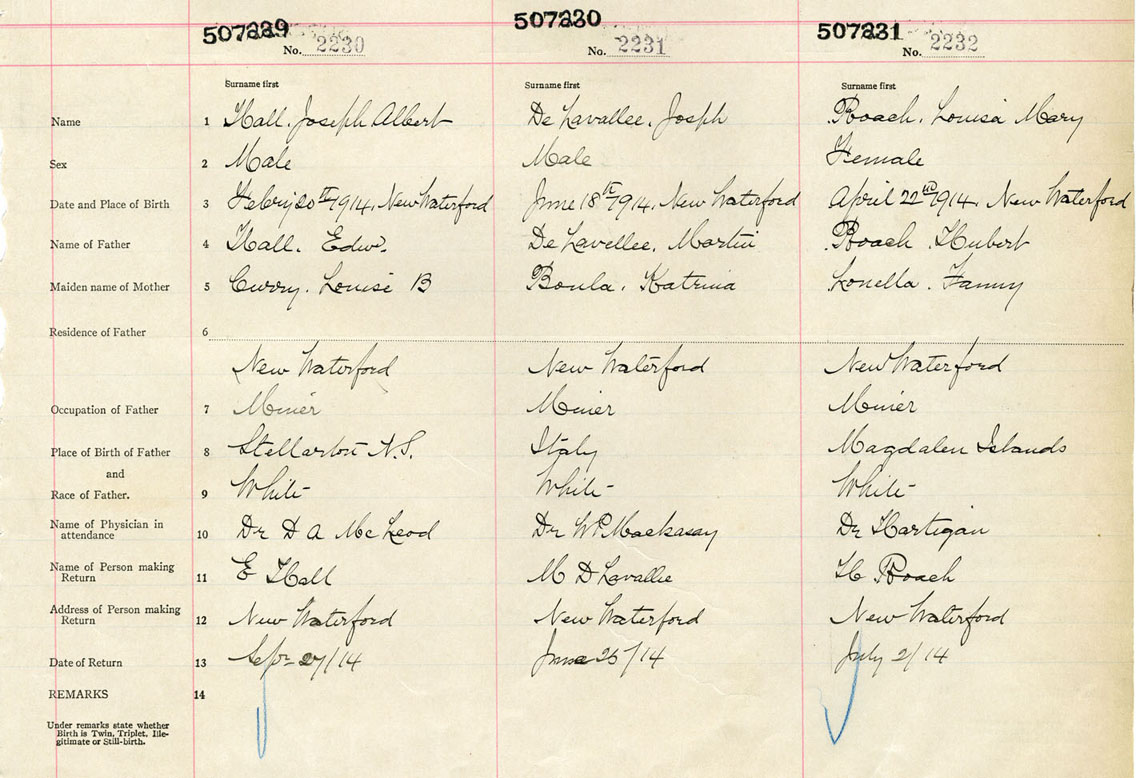 507229 507230 507231
No. 2230 No. 2231 No. 2232
Surname first Surname first Surname first
Name 1 Hall. Joseph Albert De Lavallee. Josph Roach. Louisa Mary
Sex 2 Male Male Female
Date and Place of Birth 3 Febry 20th 1914. New Waterford June 18th 1914. New Waterford April 22nd 1914. New Waterford
Name of Father 4 Hall. Edw. De Lavellee. Martin Roach Hubert
Maiden name of Mother 5 Curry. Louise B Boula. Katrina Lonella. Fanny
Residence of Father 6
New Waterford New Waterford New Waterford
Occupation of Father 7 Miner Miner Miner
Place of Birth of Father 8 Stellarton N.S. Italy Magdalen Islands
and
Race of Father. 9 White White White
Name of Physician in
attendance 10 Dr D A McLeod Dr W P Mackasay Dr Hartigan
Name of Person making
Return 11 E Hall M D Lavallie H Roach
Address of Person making
Return 12 New Waterford New Waterford New Waterford
Date of Return 13 Sepr 27/14 June 25/14 July 2/14
REMARKS 14
Under remarks state whether
Birth is Twin, Triplet, Ille-
gitimate or Still-birth.